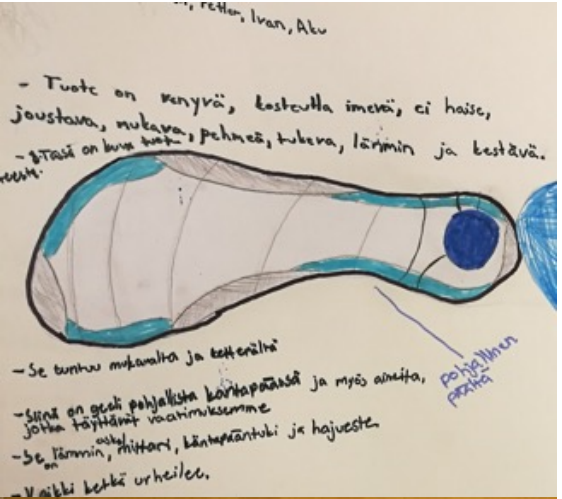 Petter, Ivan, Aku
- Tuote on venyvä, kosteutta imevä, ei haise,
joustava, mukava, pehmeä, tukeva, lämmin ja kestävä.
- Tässä on kuva
- Se tuntuu mukavalta ja ketterältä
- Siinä on geeli pohjallista kantapäässä ja myös aineita,
jotka täyttävät vaatimuksemme
- Se on lämmin, askel mittari, kantapääntuki ja hajueste.
- Kaikki ketkä urheilee.
pohjallinen
päältä